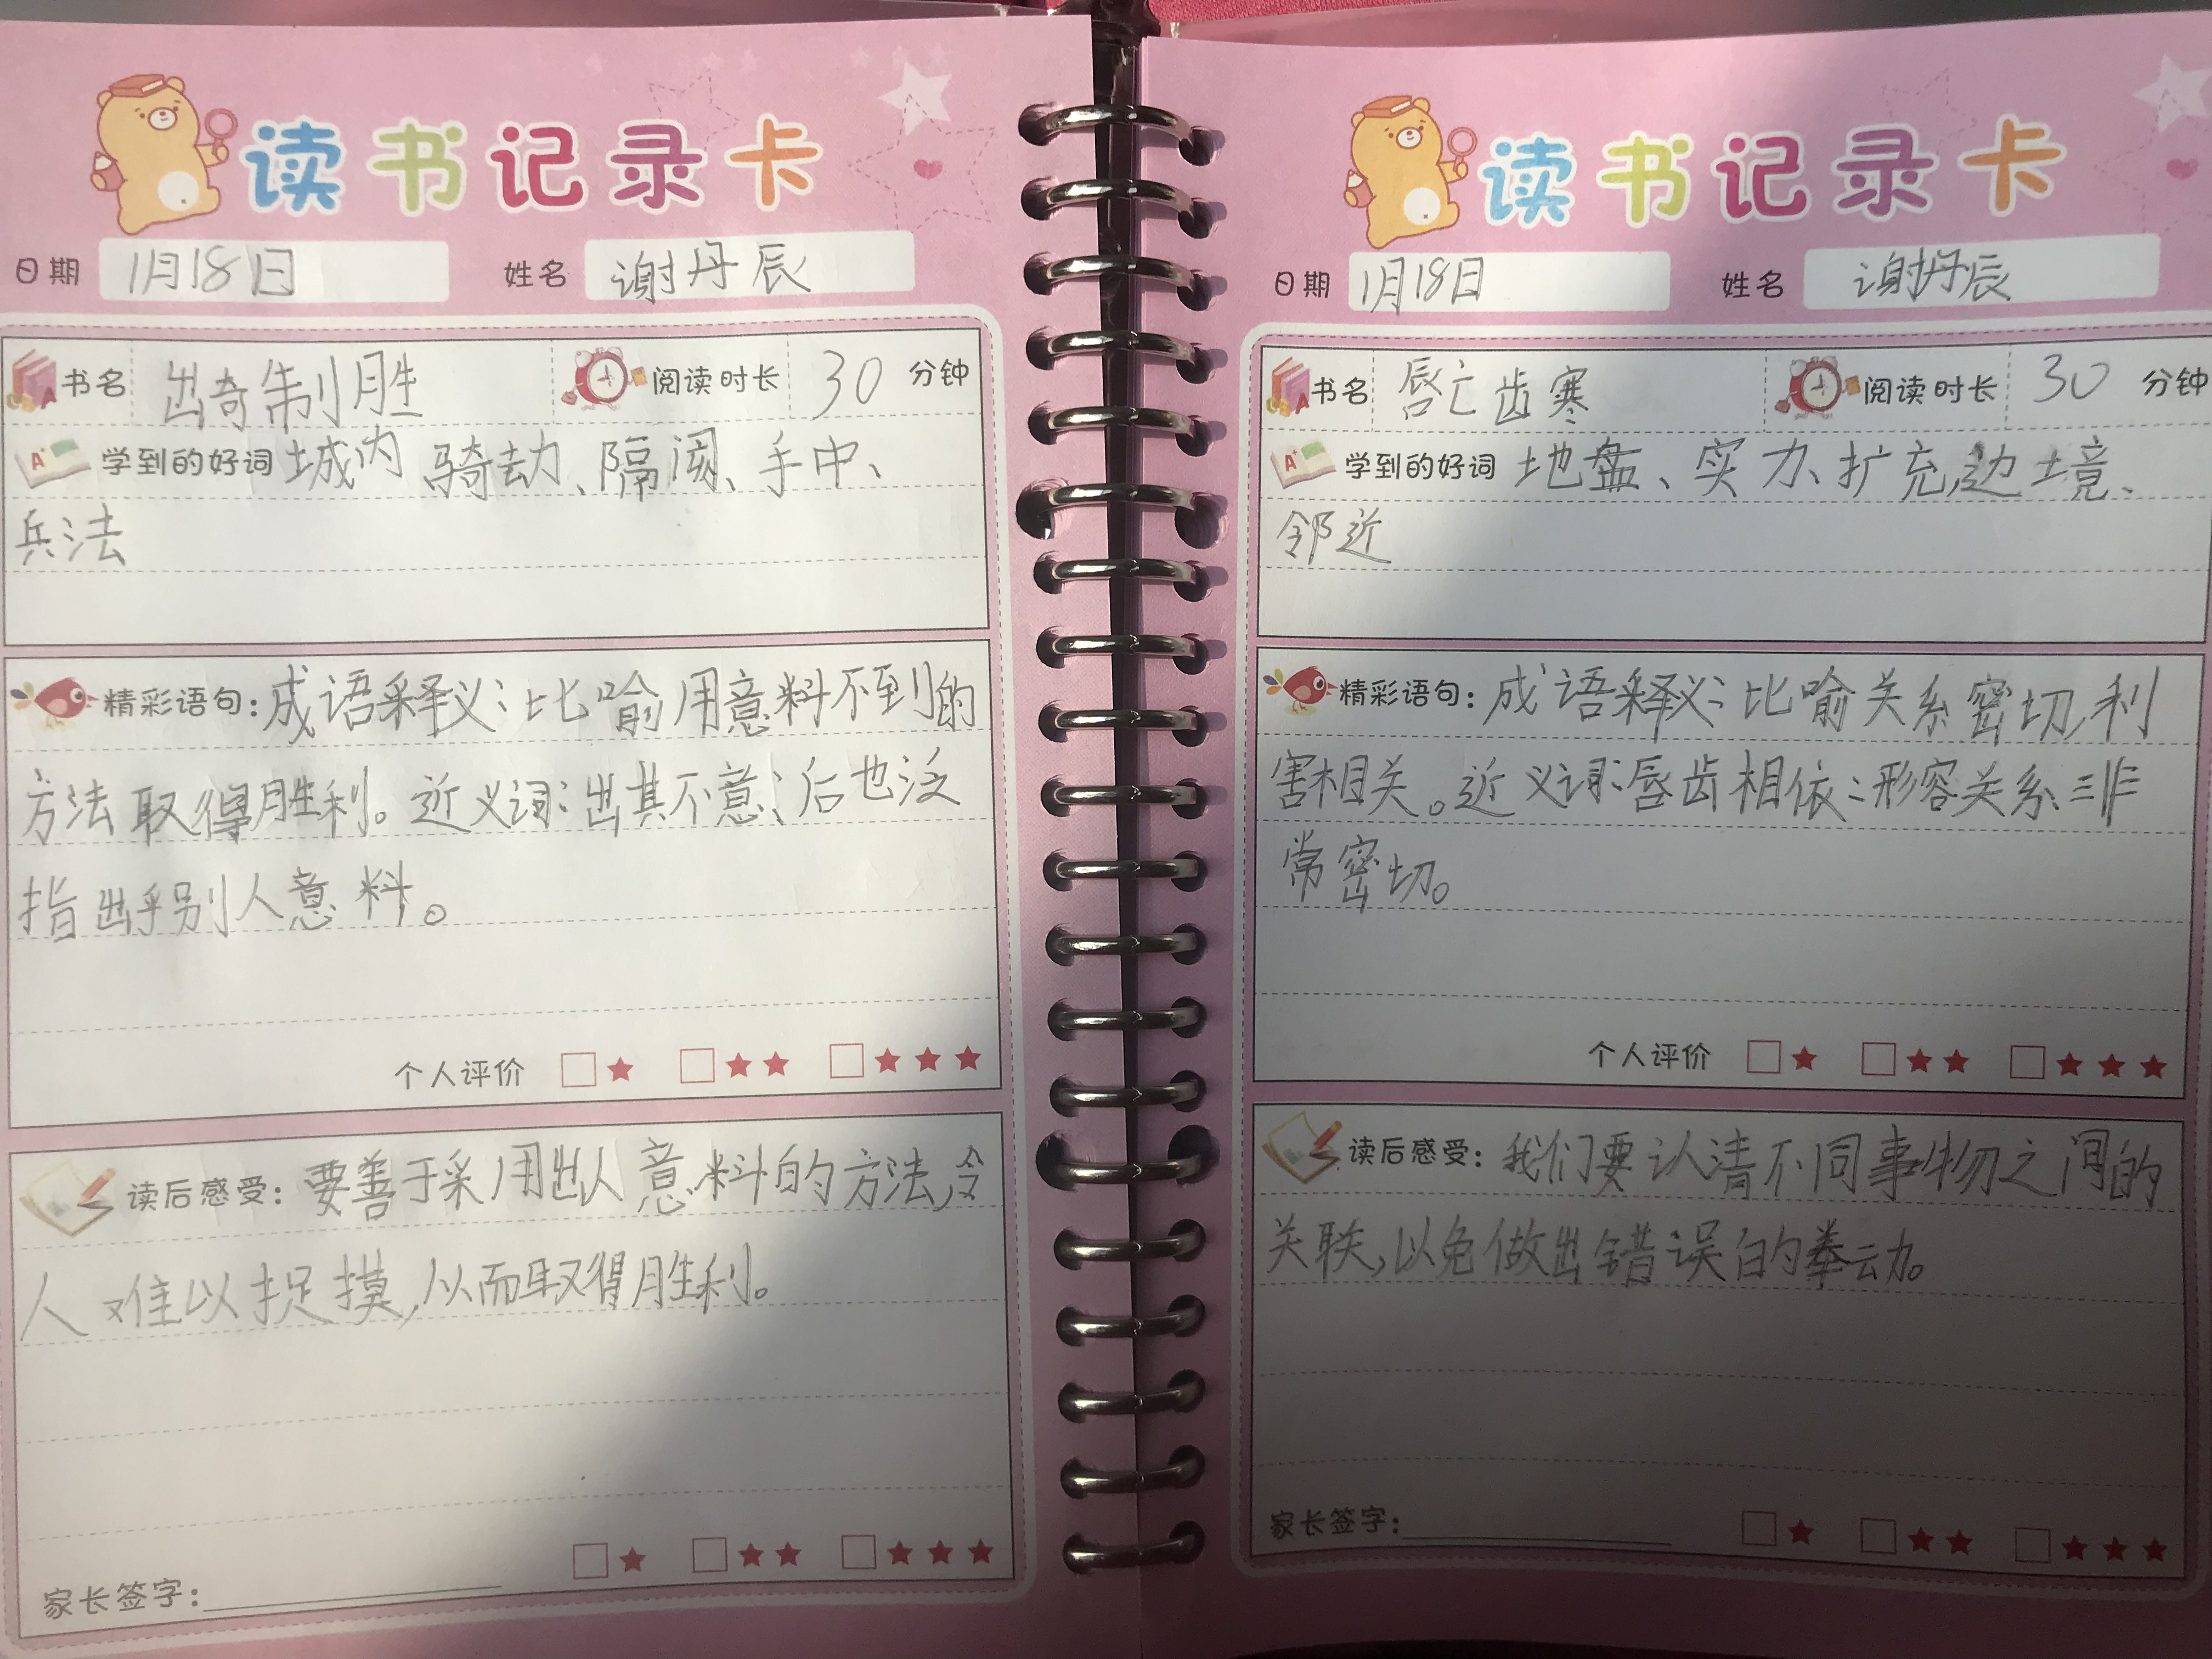 读书记录卡
日期 1月18日 姓名 谢丹辰
书名 出奇制胜 阅读时长 30 分钟
学到的好词 城内 骑劫、隔阂、手中、
兵法
精彩语句：成语释义：比喻用意料不到的
方法取得胜利。近义词：出其不意；后也泛
指出乎别人意料。
个人评价 ★ ★★ ★★★
读后感受：要善于采用出人意料的方法,令
人难以捉摸,从而取得胜利。
★ ★★ ★★★
家长签字：
读书记录卡
日期 1月18日 姓名 谢丹辰
书名 唇亡齿寒 阅读时长 30 分钟
学到的好词 地盘、实力、扩充、边境、
邻近
精彩语句：成语释义：比喻关系密切,利
害相关。近义词：唇齿相依：形容关系非
常密切。
个人评价 ★ ★★ ★★★
读后感受：我们要认清不同事物之间的
关联,以免做出错误的举动。
家长签字： ★ ★★ ★★★